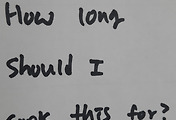 How long
Should I
cook this for?